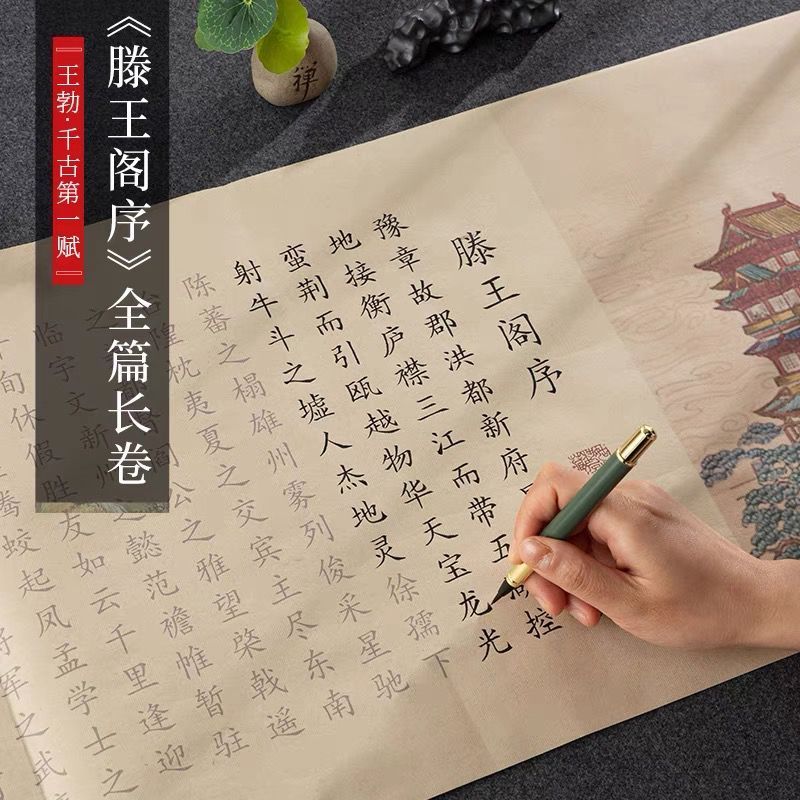 《滕王阁序》全篇长卷
『王勃·千古第一赋』
禅
滕王阁序
豫章故郡洪都新府
地接衡庐襟三江而带五湖控
蛮荆而引瓯越物华天宝龙光
射牛斗之墟人杰地灵徐孺下
陈蕃之榻雄州雾列俊采星驰
隍枕夷夏之交宾主尽东南
之 阎公之雅望棨戟遥
临宇文新州之懿范襜帷暂驻
旬休假胜友如云千里逢迎
腾蛟起凤孟学士之
将军之武